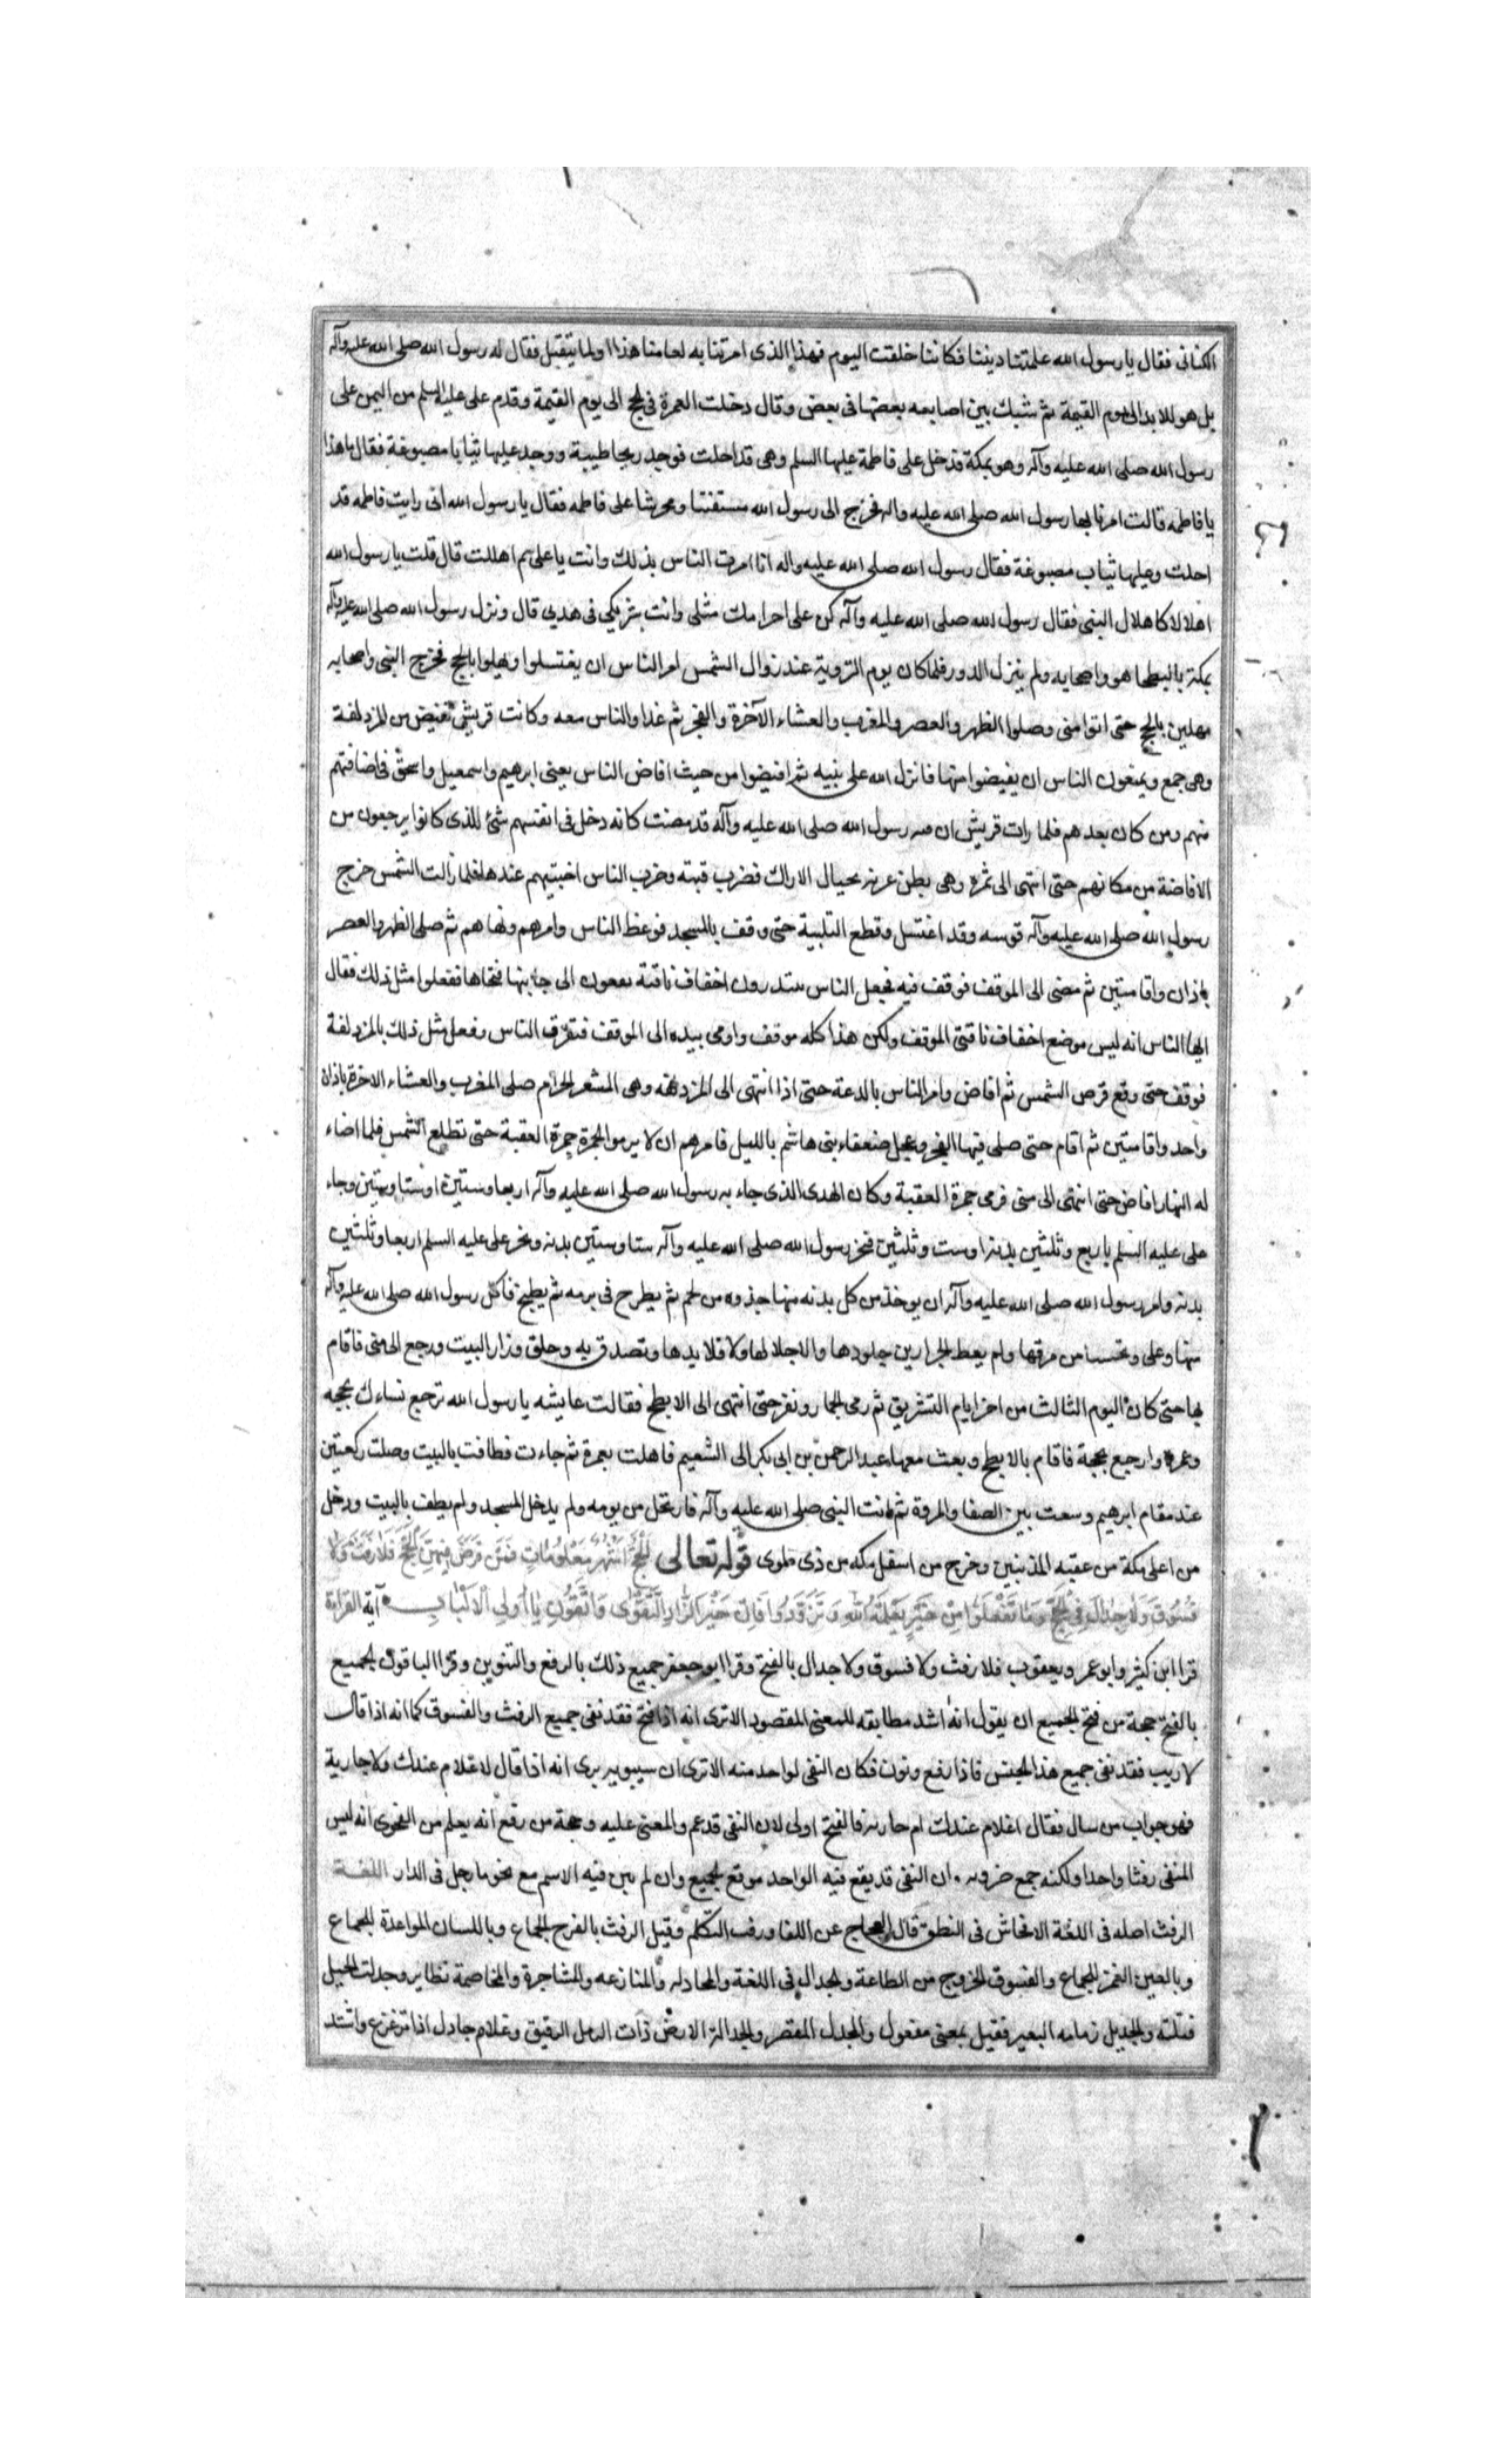 الكنانى فقال يا رسول الله علمتنا ديننا فكاننا خلقت اليوم فهذا الذى امرتنا به لعامنا هذا او لما يتقبل فقال له رسول الله صلى الله عليه وآله
بل هو للابد الى يوم القيمة ثم شبك بين اصابعه بعضها فى بعض وقال دخلت العمرة فى الحج الى يوم القيمة وقدم على عليه السلم من اليمن على
رسول الله صلى الله عليه وآله وهو بمكة فدخل على فاطمة عليها السلم وهى قد احلت فوجد ريحا طيبة ووجد عليها ثيابا مصبوغة فقال ما هذا
يا فاطمه قالت امرنا بهذا رسول الله صلى الله عليه واله فخرج الى رسول الله مستفتيا ومحرشا على فاطمه فقال يا رسول الله انى رايت فاطمه قد
احلت وعليها ثياب مصبوغة فقال رسول الله صلى الله عليه واله انا امرت الناس بذلك وانت يا على بم اهللت قال قلت يا رسول الله
اهلالا كاهلال النبى فقال رسول الله صلى الله عليه وآله كن على احرامك مثلى وانت شريكى فى هديى قال ونزل رسول الله صلى الله عليه وآله
بمكة بالبطحا هو واصحابه ولم ينزل الدور فلما كان يوم التروية عند زوال الشمس امر الناس ان يغتسلوا ويهلوا بالحج فخرج النبى واصحابه
مهلين بالحج حتى اتوا منى وصلوا الظهر والعصر والمغرب والعشاء الآخرة والفجر ثم غدا والناس معه وكانت قريش تفيض من المزدلفة
وهى جمع ويمنعون الناس ان يفيضوا منها فانزل الله على نبيه ثم افيضوا من حيث افاض الناس يعنى ابرهيم واسمعيل واسحق فى افاضتهم
منهم ومن كان بعدهم فلما رات قريش ان رسول الله صلى الله عليه وآله قد مضت كانه دخل فى انفسهم شئ للذى كانوا يرجعون من
الافاضة من مكانهم حتى انتهى الى نمرة وهى بطن عرنه بحيال الاراك فضرب قبته وضرب الناس اخبيتهم عندها فلما زالت الشمس خرج
رسول الله صلى الله عليه وآله قوسه وقد اغتسل وقطع التلبية حتى وقف بالمسجد فوعظ الناس وامرهم ونهاهم ثم صلى الظهر والعصر
باذان واقامتين ثم مضى الى الموقف فوقف فيه فجعل الناس يبتدرون اخفاف ناقته يقعون الى جانبها فنحاها ففعلوا مثل ذلك فقال
ايها الناس انه ليس موضع اخفاف ناقتى الموقف ولكن هذا كله موقف واومى بيده الى الموقف فتفرق الناس وفعل مثل ذلك بالمزدلفة
فوقف حتى وقع قرص الشمس ثم افاض وامر الناس بالدعة حتى اذا انتهى الى المزدلفه وهى المشعر الحرام صلى المغرب والعشاء الاخرة باذان
واحد واقامتين ثم اقام حتى صلى فيها الفجر وعجل ضعفاء بنى هاشم بالليل فامرهم ان لا يرموا الجمرة جمرة العقبة حتى تطلع الشمس فلما اضاء
له النهار افاض حتى انتهى الى منى فرمى جمرة العقبة وكان الهدى الذى جاء به رسول الله صلى الله عليه وآله اربعا وستين او ستا وستين وجاء
على عليه السلم باربع وثلثين بدنة او ست وثلثين فنحر رسول الله صلى الله عليه وآله ستا وستين بدنه ونحر على عليه السلم اربعا وثلثين
بدنه وامر رسول الله صلى الله عليه وآله ان يوخذ من كل بدنه منها جذوه من لحم ثم يطرح فى برمه ثم يطبخ فاكل رسول الله صلى الله عليه وآله
منها وعلى وتحسيا من مرقها ولم يعط الجزارين جلودها والاجلالها ولا قلايدها وتصدق به وحلق وزار البيت ورجع الى منى فاقام
بها حتى كان اليوم الثالث من اخر ايام التشريق ثم رمى الجمار ونفر حتى انتهى الى الابطح فقالت عايشه يا رسول الله ترجع نساءك بحجه
وعمرة وارجع بحجة فاقام بالابطح وبعث معها عبد الرحمن بن ابى بكر الى التنعيم فاهلت بعمرة ثم جاءت فطافت بالبيت وصلت ركعتين
عند مقام ابرهيم وسعت بين الصفا والمروة ثم اتت النبى صلى الله عليه وآله فارتحل من يومه ولم يدخل المسجد ولم يطف بالبيت ودخل
من اعلى مكة من عقبه المدنيين وخرج من اسفل مكه من ذى طوى قوله تعالى الحج اشهر معلومات فمن فرض فيهن الحج فلا رفث ولا
فسوق ولا جدال فى الحج وما تفعلوا من خير يعلمه الله وتزودوا فان خير الزاد التقوى واتقون يا اولى الالباب آية القراءة
قرا ابن كثير وابو عمر ويعقوب فلا رفث ولا فسوق ولا جدال بالفتح وقرا ابو جعفر جميع ذلك بالرفع والتنوين وقرا الباقون الجميع
بالفتح حجة من فتح الجميع ان يقول انه اشد مطابقه للمعنى المقصود الا ترى انه اذا فتح فقد نفى جميع الرفث والفسوق كما انه اذا قال
لا ريب فقد نفى جميع هذا الجنس فاذا رفع ونون فكان النفى لواحد منه الا ترى ان سيبويه يرى انه اذا قال لا غلام عندك ولا جارية
فهو جواب من سال فقال اغلام عندك ام جاريه فالفتح اولى لان النفى قد عم والمعنى عليه وحجة من رفع انه يعلم من الفحوى انه ليس
المنفى رفثا واحدا ولكنه جمع ضروبه ان النفى قد يقع فيه الواحد موقع الجميع وان لم يبن فيه الاسم مع نحو ما رجل فى الدار اللغـة
الرفث اصله فى اللغة الافحاش فى النطق قال العجاج عن اللغا ورفث التكلم وقيل الرفث بالفرج الجماع وباللسان المواعدة للجماع
وبالعين الغمز للجماع والفسوق الخروج من الطاعة والجدال فى اللغة والمجادله والمنازعه والمشاجرة والمخاصمة نظاير وجدلت الحبل
فتلته والجديل زمامه البعير فعيل بمعنى مفعول والمجدل القصر والجدالة الارض ذات الرمل الرقيق وغلام جادل اذا ترعرع واشتد